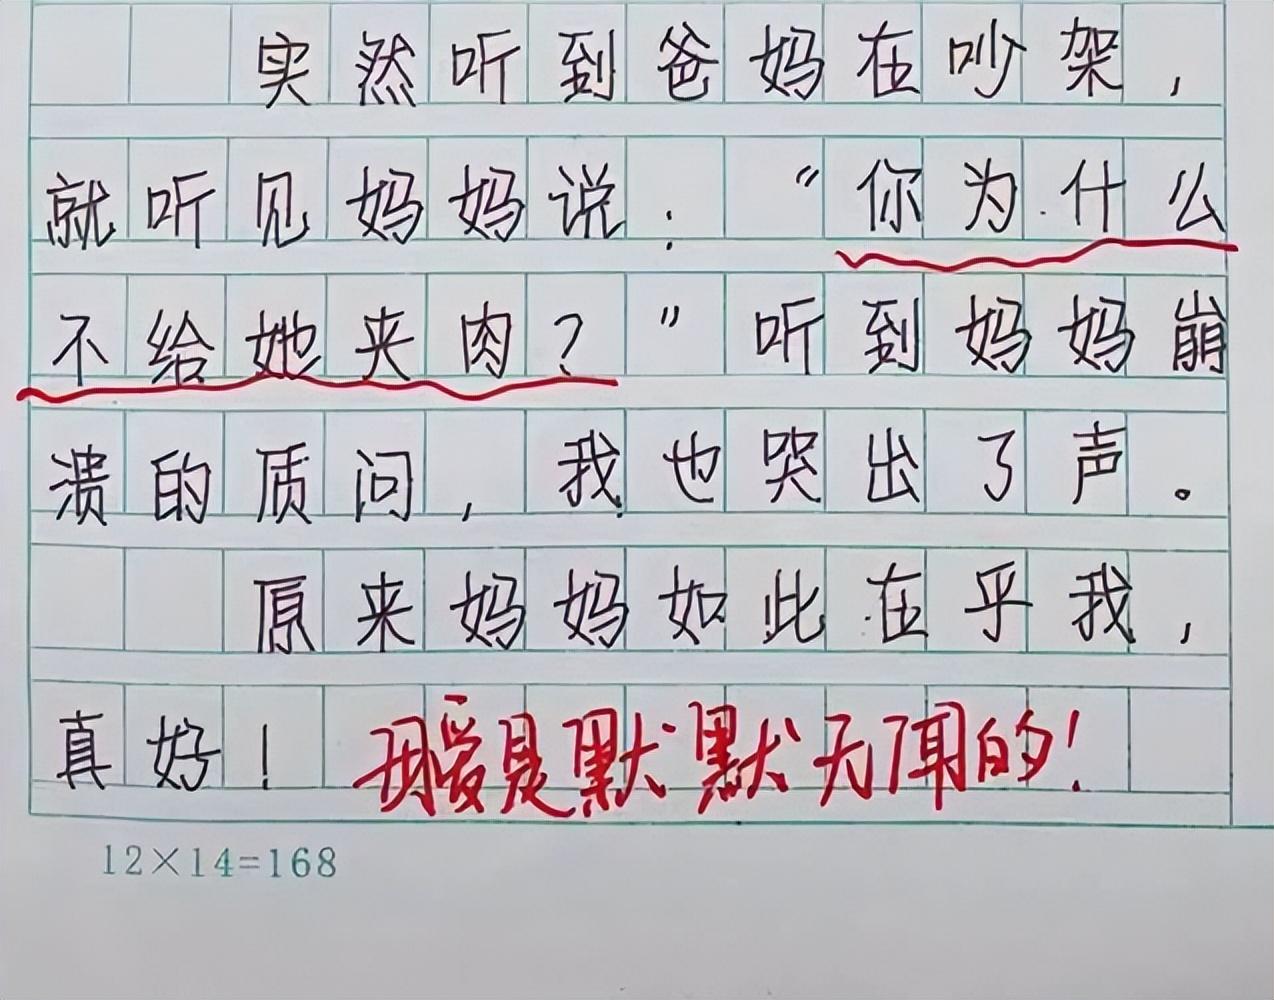 突然听到爸妈在吵架，
就听见妈妈说：“你为什么
不给她夹肉？”听到妈妈崩
溃的质问，我也哭出了声。
原来妈妈如此在乎我，
真好！母爱是默默无闻的！
12×14=168